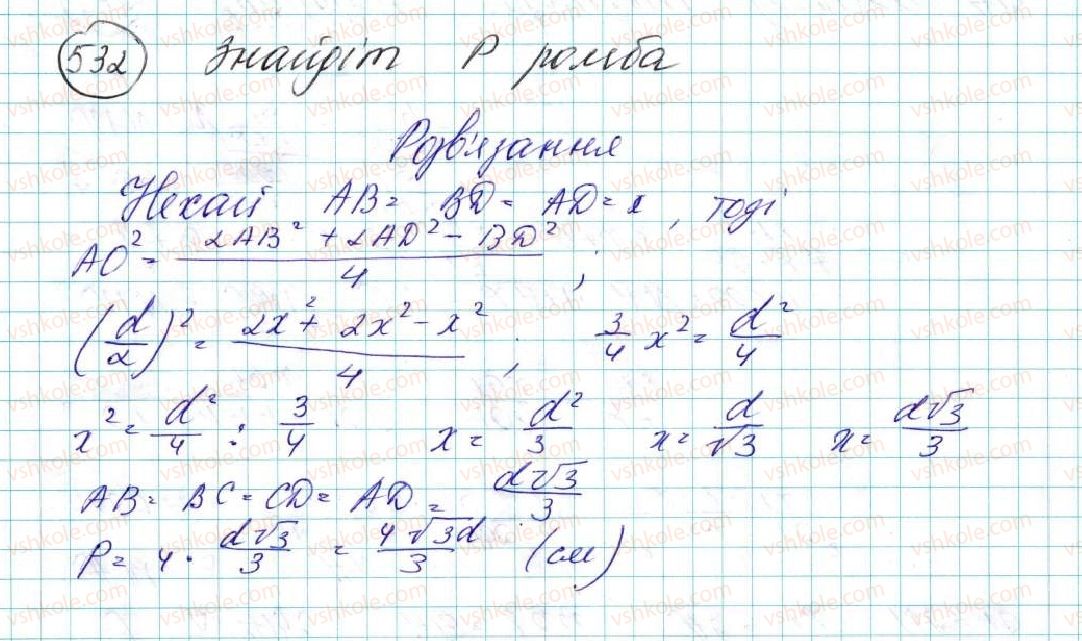 532 Знайдіт P ромба
Розв'язання
Нехай AB = BD = AD = x, тоді
AO² = (2AB² + 2AD² - BD²)/4 ;
(d/2)² = (2x² + 2x² - x²)/4 ; 3/4 x² = d²/4
x² = d²/4 : 3/4 x = d²/3 x = d/√3 x = d√3/3
AB = BC = CD = AD = d√3/3
P = 4 · d√3/3 = 4√3d/3 (см)